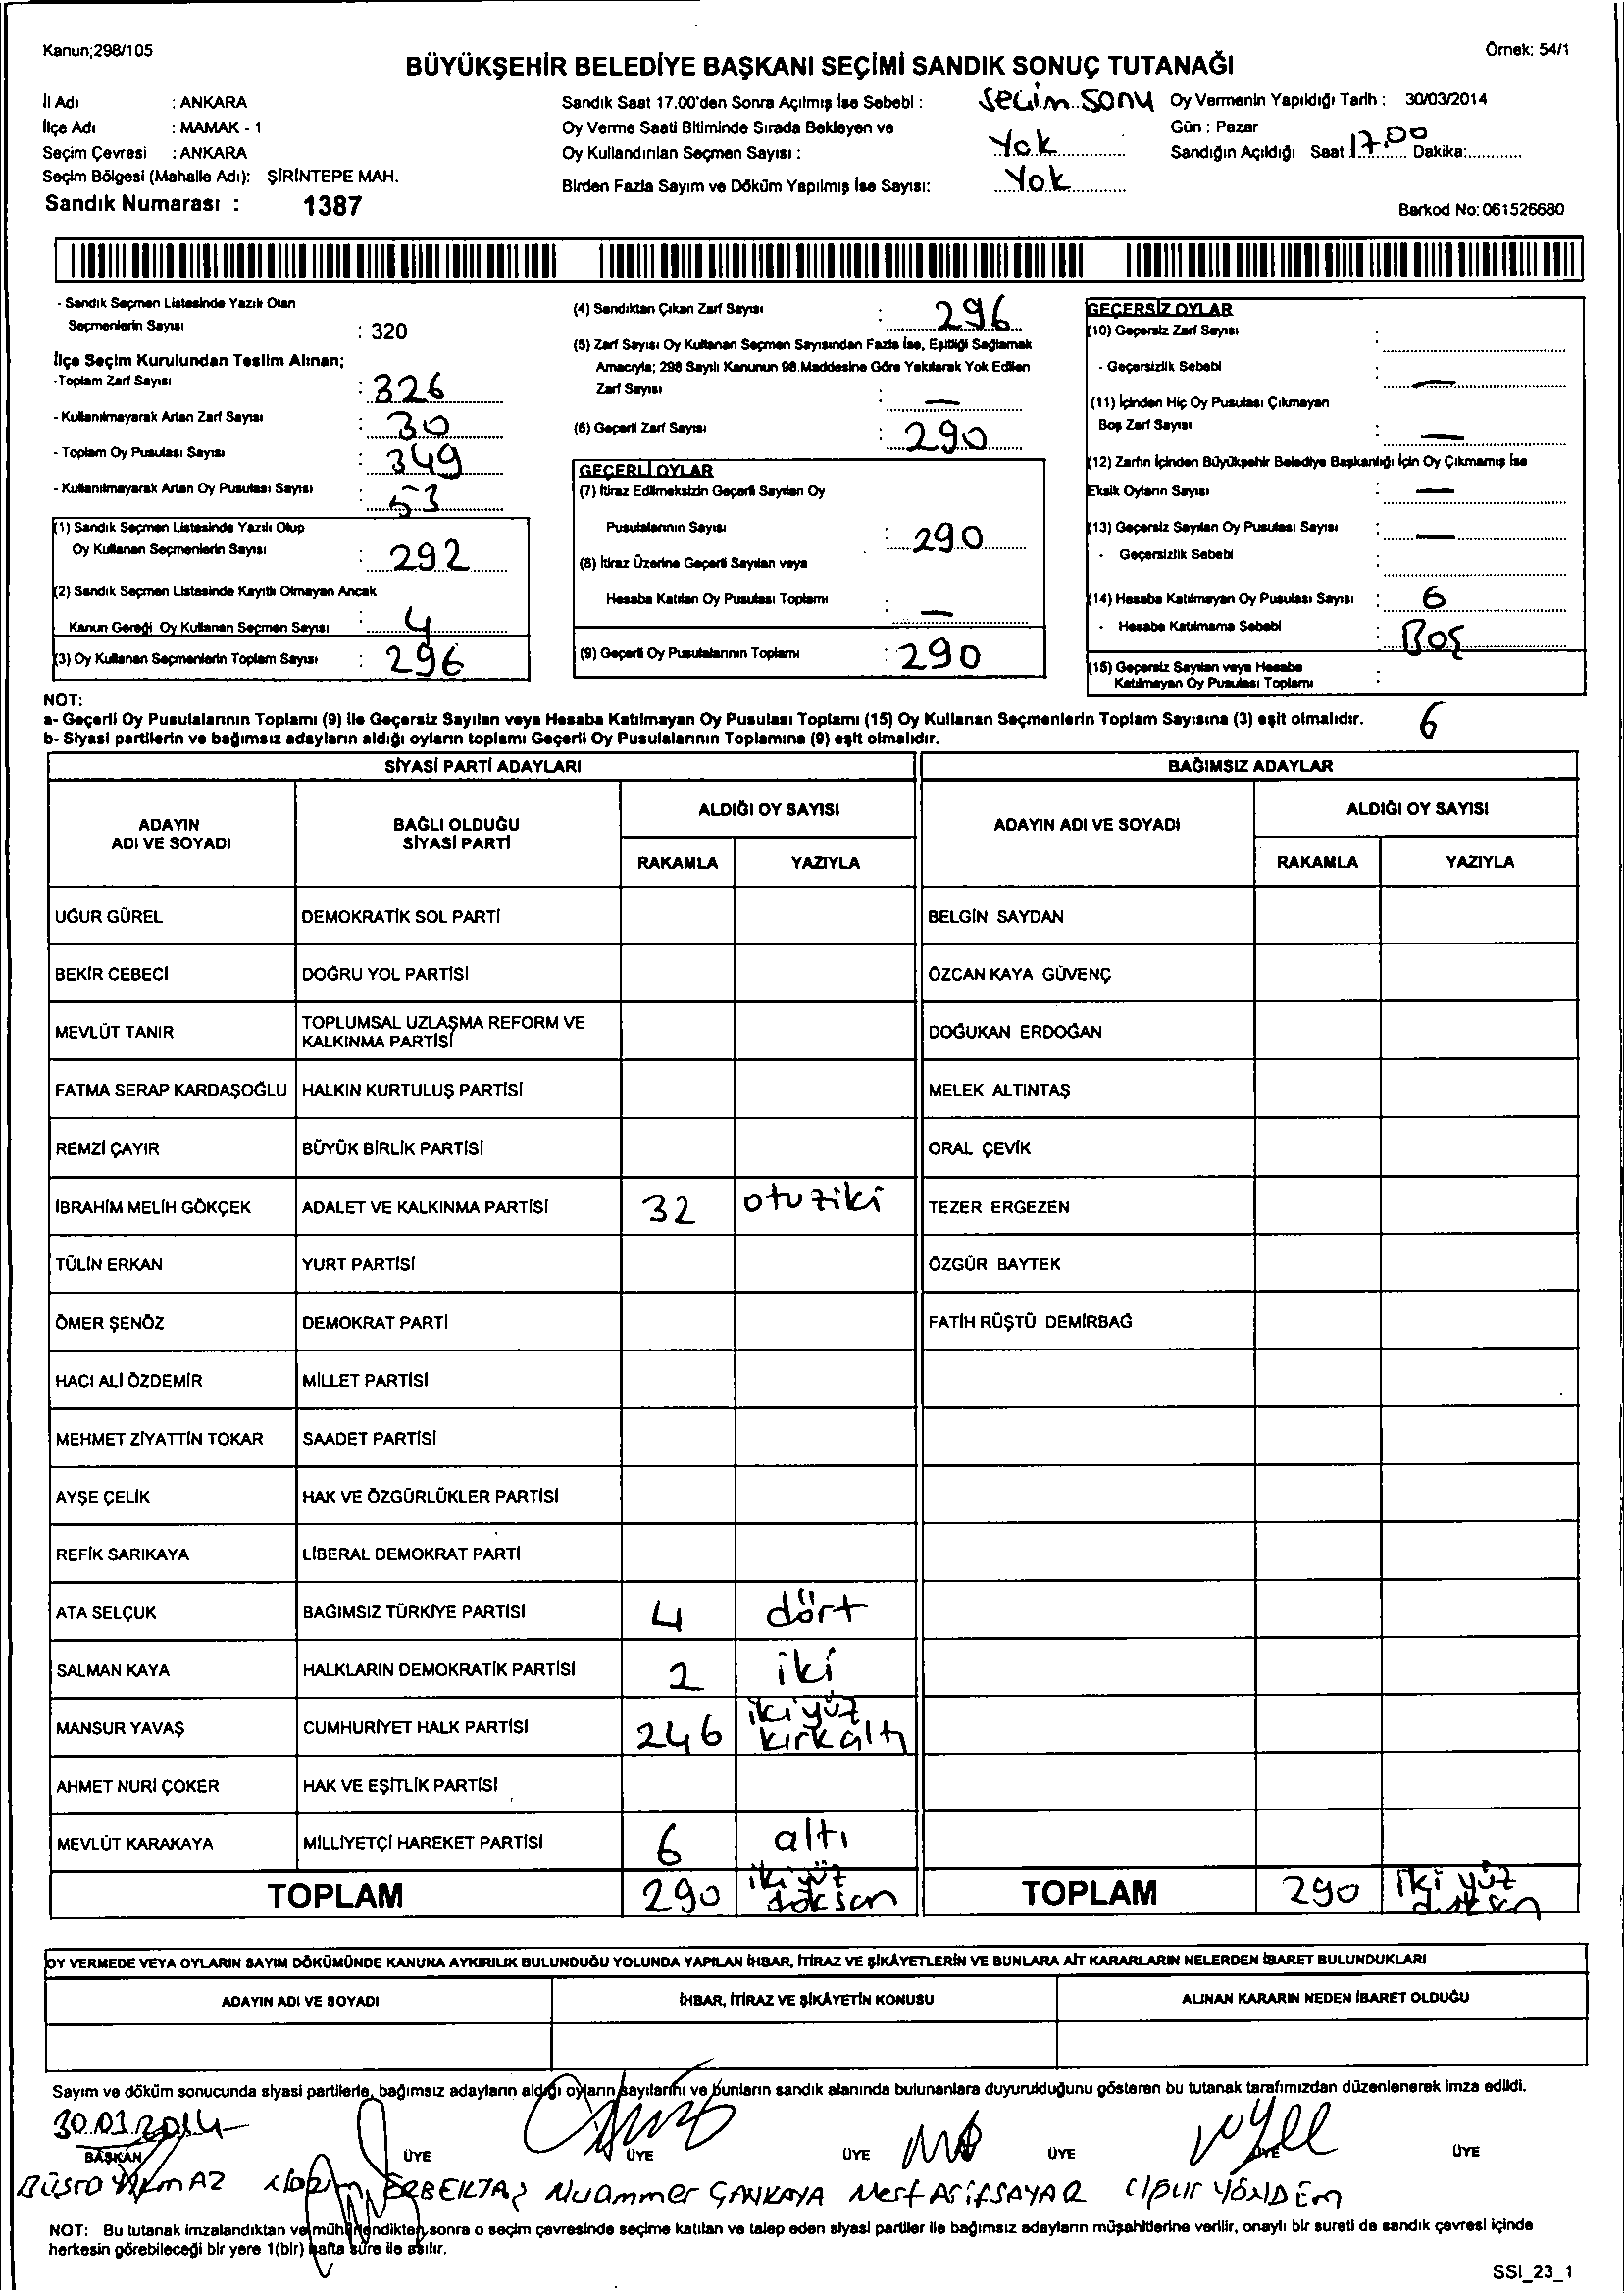 Kanun;298/105
Örnek: 54/1
BÜYÜKŞEHİR BELEDİYE BAŞKANI SEÇİMİ SANDIK SONUÇ TUTANAĞI
İl Adı : ANKARA
İlçe Adı : MAMAK - 1
Seçim Çevresi : ANKARA
Seçim Bölgesi (Mahalle Adı): ŞİRİNTEPE MAH.
Sandık Numarası : 1387
Sandık Saat 17.00'den Sonra Açılmış İse Sebebi : Seçim Sonu
Oy Verme Saati Bitiminde Sırada Bekleyen ve
Oy Kullandırılan Seçmen Sayısı : Yok
Birden Fazla Sayım ve Döküm Yapılmış İse Sayısı: Yok
Oy Vermenin Yapıldığı Tarih : 30/03/2014
Gün : Pazar
Sandığın Açıldığı Saat 17.00 Dakika:
Barkod No: 061526680
- Sandık Seçmen Listesinde Yazılı Olan
Seçmenlerin Sayısı : 320
İlçe Seçim Kurulundan Teslim Alınan;
-Toplam Zarf Sayısı : 326
- Kullanılmayarak Artan Zarf Sayısı : 30
- Toplam Oy Pusulası Sayısı : 349
- Kullanılmayarak Artan Oy Pusulası Sayısı : 53
(1) Sandık Seçmen Listesinde Yazılı Olup
Oy Kullanan Seçmenlerin Sayısı : 292
(2) Sandık Seçmen Listesinde Kayıtlı Olmayan Ancak
Kanun Gereği Oy Kullanan Seçmen Sayısı : 4
(3) Oy Kullanan Seçmenlerin Toplam Sayısı : 296
(4) Sandıktan Çıkan Zarf Sayısı : 296
(5) Zarf Sayısı Oy Kullanan Seçmen Sayısından Fazla İse, Eşitliği Sağlamak
Amacıyla; 298 Sayılı Kanunun 98.Maddesine Göre Yakılarak Yok Edilen
Zarf Sayısı : —
(6) Geçerli Zarf Sayısı : 290
GEÇERLİ OYLAR
(7) İtiraz Edilmeksizin Geçerli Sayılan Oy
Pusulalarının Sayısı : 290
(8) İtiraz Üzerine Geçerli Sayılan veya
Hesaba Katılan Oy Pusulası Toplamı : —
(9) Geçerli Oy Pusulalarının Toplamı : 290
GEÇERSİZ OYLAR
(10) Geçersiz Zarf Sayısı :
- Geçersizlik Sebebi : —
(11) İçinden Hiç Oy Pusulası Çıkmayan
Boş Zarf Sayısı : —
(12) Zarfın İçinden Büyükşehir Belediye Başkanlığı İçin Oy Çıkmamış İse
Eksik Oyların Sayısı : —
(13) Geçersiz Sayılan Oy Pusulası Sayısı : —
- Geçersizlik Sebebi :
(14) Hesaba Katılmayan Oy Pusulası Sayısı : 6
- Hesaba Katılmama Sebebi : Boş
(15) Geçersiz Sayılan veya Hesaba
Katılmayan Oy Pusulası Toplamı :
6
NOT:
a- Geçerli Oy Pusulalarının Toplamı (9) ile Geçersiz Sayılan veya Hesaba Katılmayan Oy Pusulası Toplamı (15) Oy Kullanan Seçmenlerin Toplam Sayısına (3) eşit olmalıdır.
b- Siyasi partilerin ve bağımsız adayların aldığı oyların toplamı Geçerli Oy Pusulalarının Toplamına (9) eşit olmalıdır.
SİYASİ PARTİ ADAYLARI
ADAYIN ADI VE SOYADI
BAĞLI OLDUĞU SİYASİ PARTİ
ALDIĞI OY SAYISI
RAKAMLA YAZIYLA
UĞUR GÜREL DEMOKRATİK SOL PARTİ
BEKİR CEBECİ DOĞRU YOL PARTİSİ
MEVLÜT TANIR TOPLUMSAL UZLAŞMA REFORM VE
KALKINMA PARTİSİ
FATMA SERAP KARDAŞOĞLU HALKIN KURTULUŞ PARTİSİ
REMZİ ÇAYIR BÜYÜK BİRLİK PARTİSİ
İBRAHİM MELİH GÖKÇEK ADALET VE KALKINMA PARTİSİ 32 otuziki
TÜLİN ERKAN YURT PARTİSİ
ÖMER ŞENÖZ DEMOKRAT PARTİ
HACI ALİ ÖZDEMİR MİLLET PARTİSİ
MEHMET ZİYATTİN TOKAR SAADET PARTİSİ
AYŞE ÇELİK HAK VE ÖZGÜRLÜKLER PARTİSİ
REFİK SARIKAYA LİBERAL DEMOKRAT PARTİ
ATA SELÇUK BAĞIMSIZ TÜRKİYE PARTİSİ 4 dört
SALMAN KAYA HALKLARIN DEMOKRATİK PARTİSİ 2 iki
MANSUR YAVAŞ CUMHURİYET HALK PARTİSİ 246 ikiyüz kırkaltı
AHMET NURİ ÇOKER HAK VE EŞİTLİK PARTİSİ
MEVLÜT KARAKAYA MİLLİYETÇİ HAREKET PARTİSİ 6 altı
TOPLAM 290 ikiyüz doksan
BAĞIMSIZ ADAYLAR
ADAYIN ADI VE SOYADI
ALDIĞI OY SAYISI
RAKAMLA YAZIYLA
BELGİN SAYDAN
ÖZCAN KAYA GÜVENÇ
DOĞUKAN ERDOĞAN
MELEK ALTINTAŞ
ORAL ÇEVİK
TEZER ERGEZEN
ÖZGÜR BAYTEK
FATİH RÜŞTÜ DEMİRBAĞ
TOPLAM 290 iki yüz doksan
OY VERMEDE VEYA OYLARIN SAYIM DÖKÜMÜNDE KANUNA AYKIRILIK BULUNDUĞU YOLUNDA YAPILAN İHBAR, İTİRAZ VE ŞİKÂYETLERİN VE BUNLARA AİT KARARLARIN NELERDEN İBARET BULUNDUKLARI
ADAYIN ADI VE SOYADI
İHBAR, İTİRAZ VE ŞİKÂYETİN KONUSU
ALINAN KARARIN NEDEN İBARET OLDUĞU
Sayım ve döküm sonucunda siyasi partilerle, bağımsız adayların aldığı oyların sayılarını ve bunların sandık alanında bulunanlara duyurulduğunu gösteren bu tutanak tarafımızdan düzenlenerek imza edildi.
30.03.2014
BAŞKAN ÜYE ÜYE ÜYE ÜYE ÜYE ÜYE
Büşra YILMAZ ERBEKTAŞ Muammer ÇANKAYA Mert ArifSAYAR YÖNDEM
NOT: Bu tutanak imzalandıktan ve mühürlendikten sonra o seçim çevresinde seçime katılan ve talep eden siyasi partiler ile bağımsız adayların müşahitlerine verilir, onaylı bir sureti de sandık çevresi içinde
herkesin görebileceği bir yere 1(bir) hafta süre ile asılır.
SSI_23_1